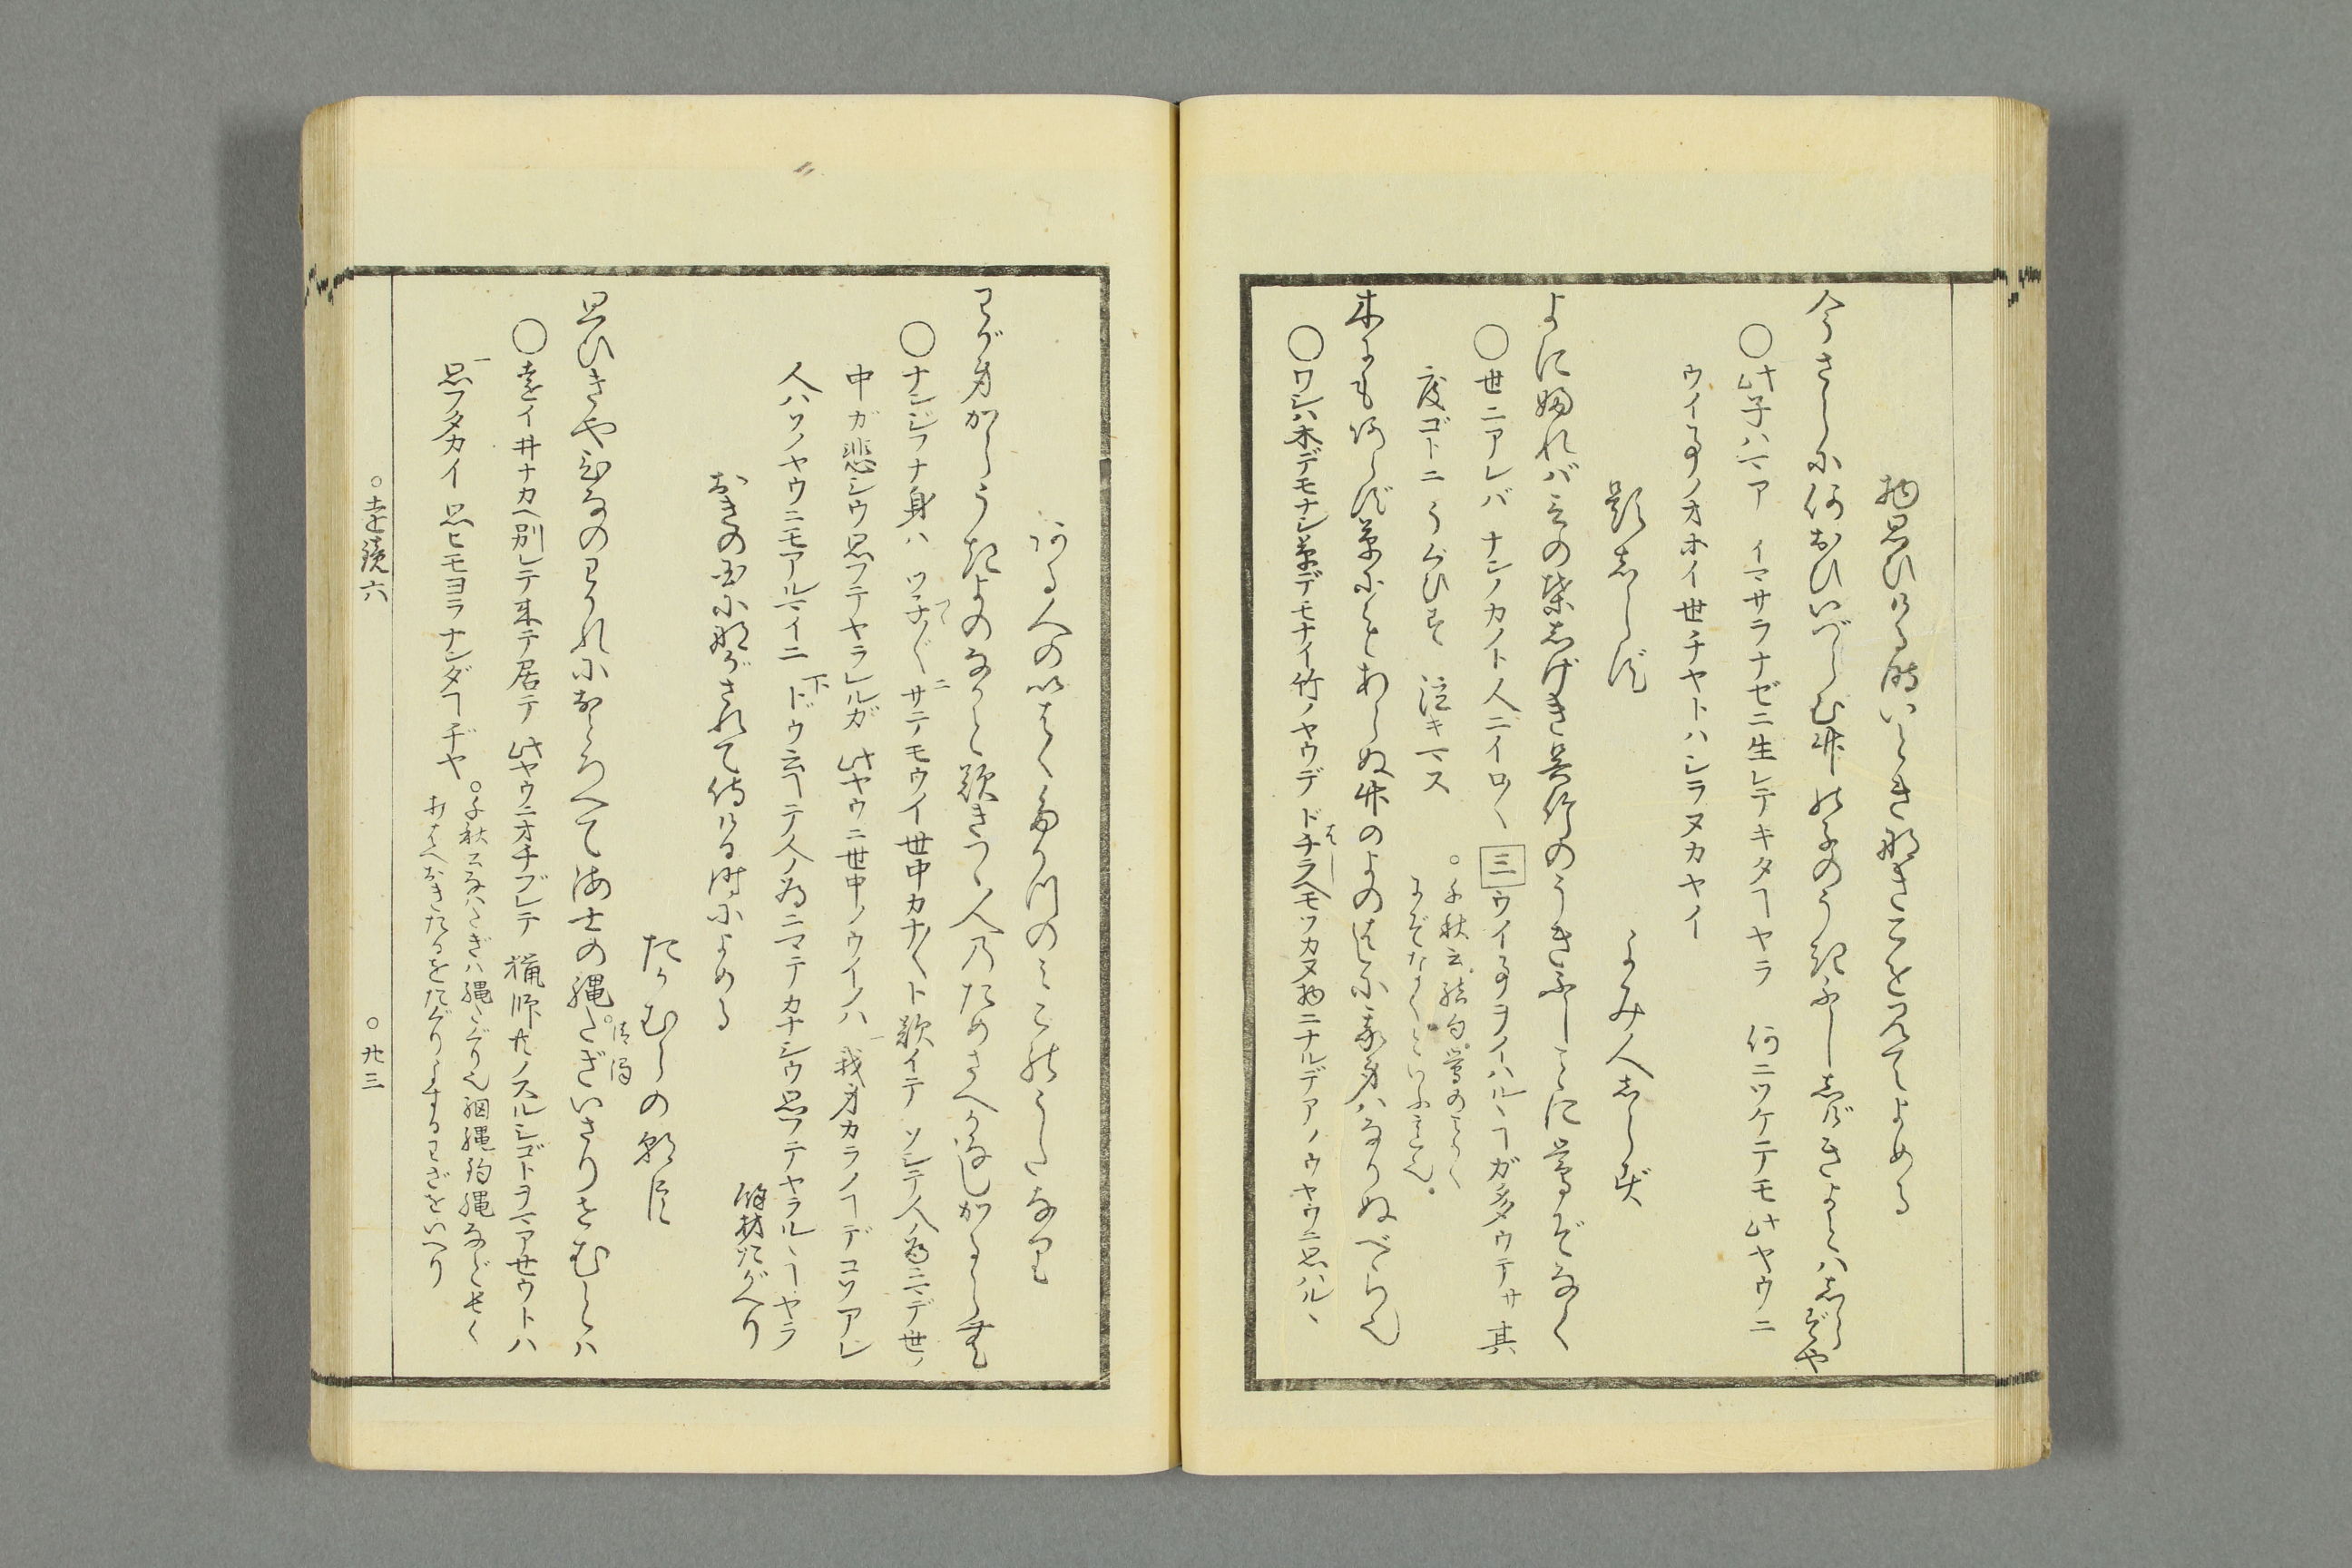 物思ひける時いときなきこを見てよめる
今さらに何おひいづらむ竹の子のうきふししげきよとはしらずや
○此子ハマア イマサラナゼニ生レテキタヿヤラ 何ニツケテモ此ヤウニ
ウイ事ノオホイ世ヂヤトハシラヌカヤイ
題しらず よみ人しらず
よにふればことの葉しげき呉竹のうきふしごとに鶯ぞなく
○世ニアレバ ナンノカノト人ニイロ〳〵 三 ウイ事ヲイハルヽヿガ多ウテサ 其
度ゴトニ うぐひす 泣キマス
○千秋云 結句 鶯のごとく
にぞなくといふ意也
木にもあらず草にもあらぬ竹のよのはしに我身はなりぬべら也
○ワシハ木デモナシ草デモナイ竹ノヤウデ ドチラヘモツカヌ物ニナルデアラウヤウニ思ハルヽ
はし
ある人のいはくたかつのみこのうたなり
わが身からうき世の中となげきつゝ人のためさへかなしかるらむ
○ナンジフナ身ハ ツネ〴〵 サテモウイ世中カナ〳〵ト歎イテ ソシテ人ノ為ニマデ世ノ
中ガ悲シウ思フテヤラレルガ 此ヤウニ世中ノウイノハ 我身カラノヿデコソアレ
人ハソノヤウニモアルマイニ ドウ云ヿテ人ノ為ニマテカナシウ思フテヤラルヽヿヤラ
餘材たがへり
おきの国にながされて侍ける時によめる
たかむらの朝臣
思ひきやひなのわかれにおとろへて海士の縄たぎいさりせむとは
清濁
○遠イ井ナカヘ別レテ来テ居テ 此ヤウニオチブレテ 猟師共ノスルシゴトヲマアせウトハ
思フタカイ 思ヒモヨラナンダヿヂヤ
○千秋云なはたぎハ縄たぐり也網縄釣縄などせく
おはへおきたるをたぐりよするわざをいへり
○遠鏡六 ○廿三